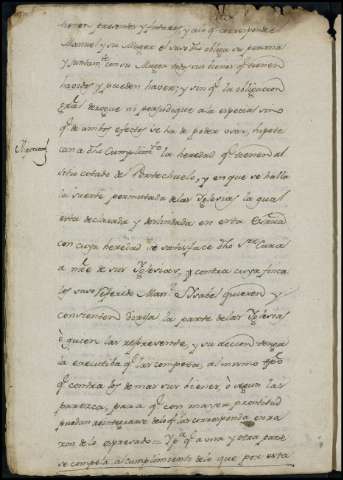 tienen presentes y futuros y a lo q.e corresponde
Manuel y su Muger el suso dho obliga su persona
y juntam.te con su Muger todos sus bienes q.e tienen
havidos y pueden haver; y sin q.e la obligacion
gral derogue ni perjudique a la especial sino
q.e de ambos efectos se ha de poder usar, hipote
can a dho Cumplim.to la heredad q.e tienen al
sitio cotado de Portechuelo, y en que se halla
la suerte permutada de las Yglesias la qual
esta declarada y deslindada en esta Escra
con cuya heredad se satisface dho S.or Cura
a nre de sus Yglesias, y contra cuya finca
los suso referidos Man.l e Ysabel quieren y
consienten dirija la parte de las Yglesias
ó quien las represente, y su accion tenga
la executiba q.e las competa, al mismo tpo
q.e contra los demas sus bienes, ó segun las
parezca, para q.e con mayor prontitud
puedan reintegrarse de lo q.e las corresponda en ra
zon de lo expresado = Y p.a q.e a una y otra parte
se compela al cumplimiento de lo que por esta